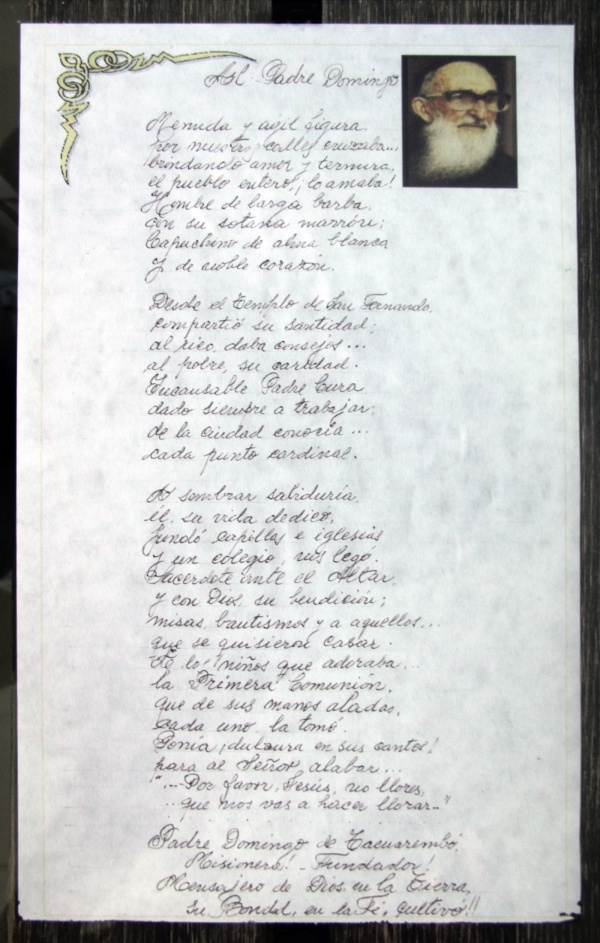 Al Padre Domingo
Menuda y agil figura
por nuestras calles cruzaba...,
brindando amor y ternura,
el pueblo entero, ¡lo amaba!
Hombre de larga barba,
con su sotana marrón;
Capuchino de alma blanca
y de noble corazón.
Desde el Templo de San Fernando,
compartió su santidad;
al rico, daba consejos...
al pobre, su caridad.
Incansable Padre Cura
dado siempre a trabajar;
de la ciudad conocía...
cada punto cardinal.
A sembrar sabiduría,
él, su vida dedicó,
fundó capillas e iglesias
y un colegio, nos legó.
Sacerdote ante el Altar,
y con Dios, su bendición;
misas, bautismos y a aquellos...
que se quisieron casar.
niños que adoraba...
la "Primera" Comunión,
que de sus manos aladas,
cada uno, la tomó.
Ponía ¡dulzura en sus cantos!
para al Señor, alabar...
"...Por favor, Jesús, no llores,
...que nos vas a hacer llorar..."
Padre Domingo de Tacuarembó,
Misionero! - Fundador!
Mensajero de Dios, en la Tierra,
su Bondad, en la Fé, cultivó!!